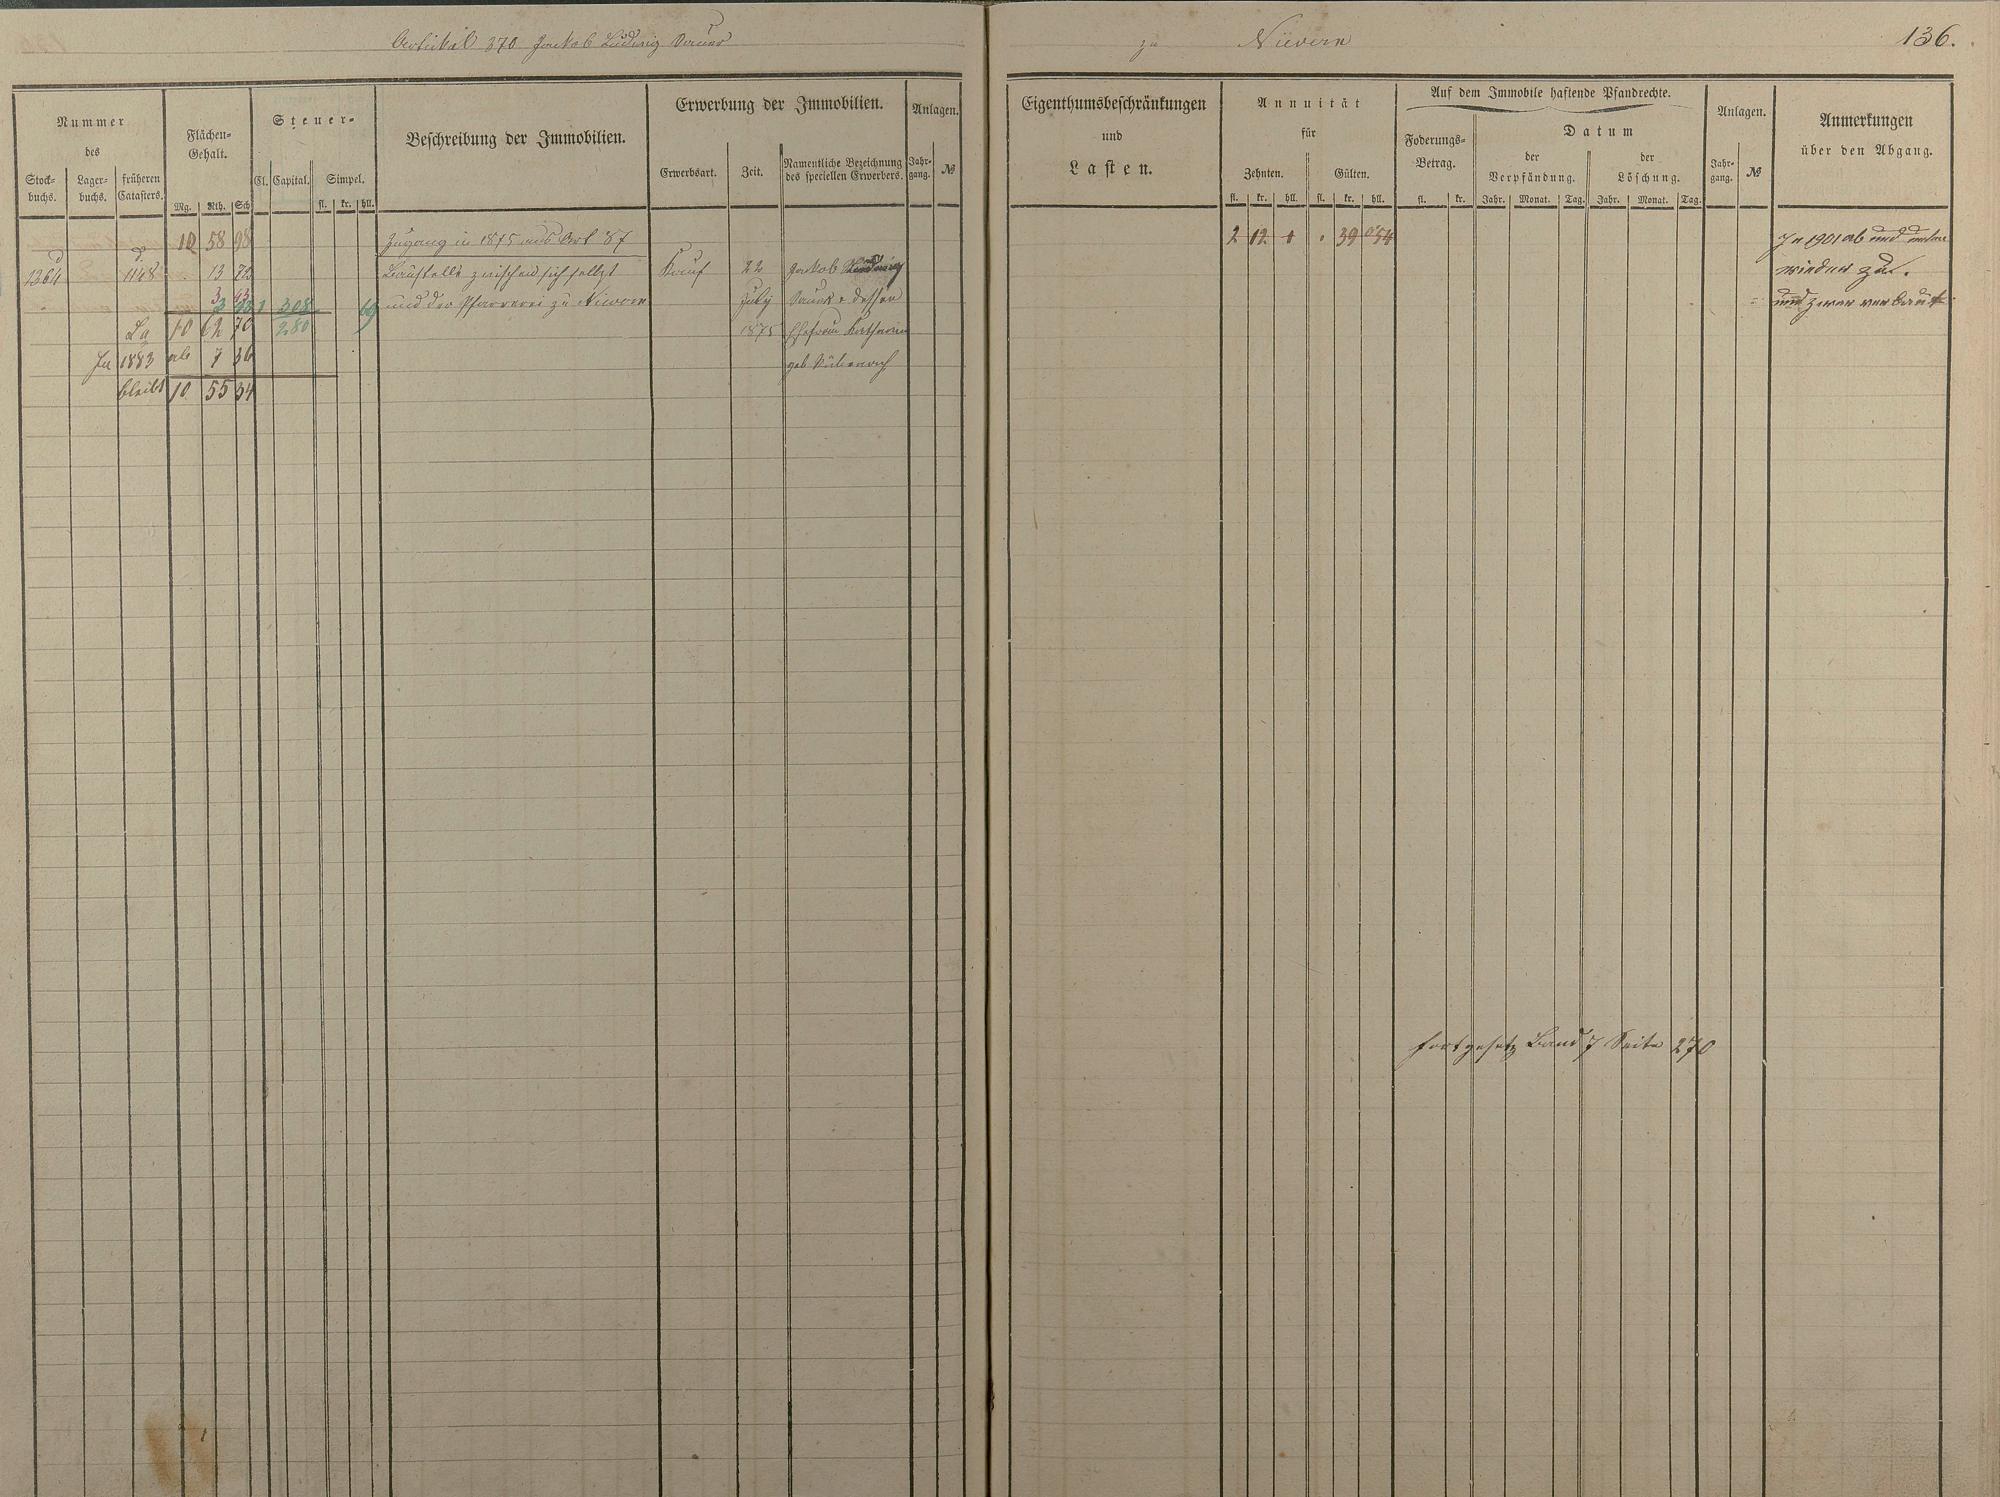 Artikel 370 Jackob Ludwig Sauer
zu Nievern
136.
Nummer
des
Stock-
buchs.
Lager-
buchs.
früheren
Catasters.
Flächen-
Gehalt.
Mg. Rth. Sch
Steuer-
Cl. Capital. Simpel.
fl. kr. hll.
Beschreibung der Immobilien.
Erwerbung der Immobilien.
Erwerbsart. Zeit.
Namentliche Bezeichnung
des speciellen Erwerbers.
Anlagen.
Jahr-
gang.
№
Eigenthumsbeschränkungen
und
Lasten.
Annuität
für
Zehnten. Gülten.
fl. kr. hll. fl. kr. hll.
Auf dem Immobile haftende Pfandrechte.
Foderungs-
Betrag.
fl. kr.
Datum
der
Verpfändung.
der
Löschung.
Jahr. Monat. Tag. Jahr. Monat. Tag.
Anlagen.
Jahr-
gang.
№
Anmerkungen
über den Abgang.
10 58 98 Zugang in 1875 aus Art 87
2 12 1 39
In 1901 ab und
1364 d 1148 d 13 72 Baustelle zwischen sich selbst Kauf 22 Jakob
wieder zu.
3 93 1 308 69 und der Pfarrerei zu Nievern July Sauer & dessen
und zwar verbaut
La 10 62 70 280 1875 Ehefrau Katharina
In 1883 ab 7 36 geb
bleibt 10 55 34
fortgesetz Band 7 Seite 270